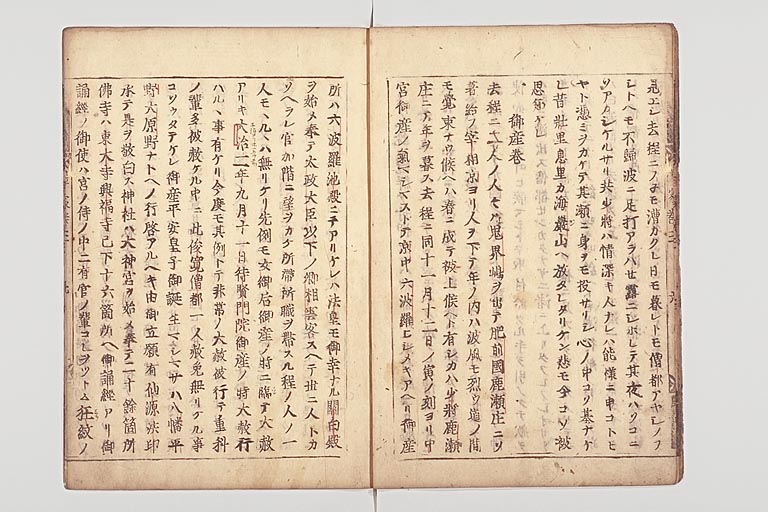 見エシ去程ニフ子モ漕カクレ日モ暮レトモ僧都アヤシノフ
シトヘモ不歸波ニ足打アラハせ露ニシホレテ其夜ハソコニ
ソアカシケルサリ共少將ハ情深キ人ナレハ能様ニ申コトモ
ヤト憑ミヲカケテ其瀬ニ身ヲモ投サリシ心ノ中コソ墓ナケ
レ昔壯里息里カ海巖山ヘ放タレタリケン悲モ今コソ被
思知ケレ
御産巻
去程ニ二人ノ人々ハ鬼界嶋ヲ出テ肥前國鹿瀬庄ニソ
着給フ宰相京ヨリ人ヲ下テ年ノ内ハ波風モ烈ク道ノ間
モ覚束ナウ候ヘハ春ニ成テ被上候ヘト有シカハ少將鹿瀬
庄ニテ年ヲ暮ス去程ニ同十一月十二日ノ寅ノ刻ヨリ中
宮御産ノ氣マシマストテ京中六波羅ヒシメキアヘリ御産
所ハ六波羅池殿ニテアリケレハ法皇モ御幸ナル關白殿
ヲ始メ奉テ太政大臣以下ノ卿相雲客スヘテ世ニ人トカ
ソヘラレ官加階ニ望ヲカケ所帶所職ヲ帶スル程ノ人ノ一
人モヽルヽハ無リケリ先例モ女御后御産ノ時ニ臨テ大赦
アリキ大治二年九月十一日待賢門院御産ノ時大赦行
ハルヽ事有ケリ今度モ其例トテ非常ノ大赦被行テ重科
ノ輩多被赦ケル中ニ此俊寛僧都一人赦免無リケル事
コソウタテケレ御産平安皇子御誕生マシマサハ八幡平
野大原野ナトヘノ行啓アルヘキ由御立願有仙源法印
承テ是ヲ敬白ス神社ハ大神宮ヲ始メ奉テ二十餘箇所
佛寺ハ東大寺興福寺已下十六箇所ヘ御誦經アリ御
誦經ノ御使ハ宮ノ侍ノ中ニ有官ノ輩コレヲツトム狂紋ノ